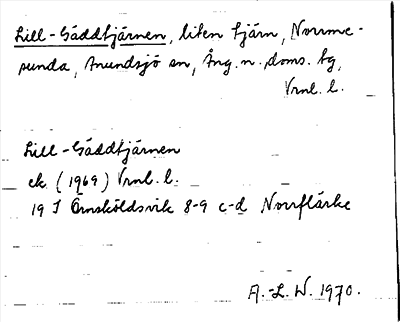 Lill-Gäddtjärnen, liten tjärn, Norrme-
sunda, Anundsjö sn, Ång. n. doms. tg,
Vrnl. l.
Lill-Gäddtjärnen
ek. (1969) Vrnl. l.
19 J Örnsköldsvik 8-9 c-d Norrflärke
A.-L. W. 1970.